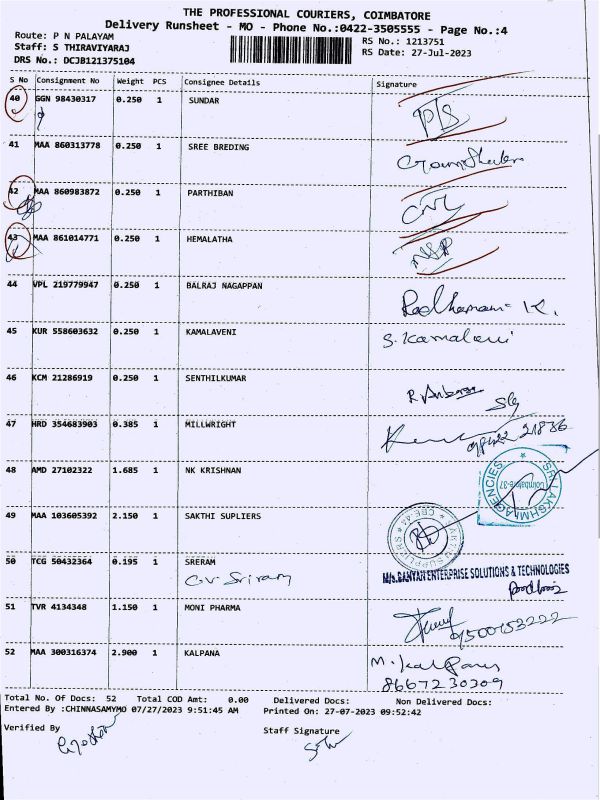 THE PROFESSIONAL COURIERS, COIMBATORE
Delivery Runsheet - MO - Phone No.:0422-3505555 - Page No.:4
Route: P N PALAYAM
Staff: S THIRAVIYARAJ
DRS No.: DCJB121375104
RS No.: 1213751
RS Date: 27-Jul-2023
S No Consignment No Weight PCS Consignee Details Signature
40 GGN 98430317 0.250 1 SUNDAR P/S
41 MAA 860313778 0.250 1 SREE BREDING
42 MAA 860983872 0.250 1 PARTHIBAN CNL
43 MAA 861014771 0.250 1 HEMALATHA NSP
44 VPL 219779947 0.250 1 BALRAJ NAGAPPAN Radhamani K.
45 KUR 558603632 0.250 1 KAMALAVENI S. Kamalaveni
46 KCM 21286919 0.250 1 SENTHILKUMAR
47 HRD 354683903 0.385 1 MILLWRIGHT
48 AMD 27102322 1.685 1 NK KRISHNAN
SRI LAKSHMI AGENCIES Coimbatore-37
49 MAA 103605392 2.150 1 SAKTHI SUPLIERS
50 TCG 50432364 0.195 1 SRERAM
G.V. Sriram
M/s.BANYAN ENTERPRISE SOLUTIONS & TECHNOLOGIES
51 TVR 4134348 1.150 1 MONI PHARMA
52 MAA 300316374 2.900 1 KALPANA M. Kalpana
8667230209
Total No. Of Docs: 52 Total COD Amt: 0.00 Delivered Docs: Non Delivered Docs:
Entered By :CHINNASAMYMO 07/27/2023 9:51:45 AM Printed On: 27-07-2023 09:52:42
Verified By Staff Signature